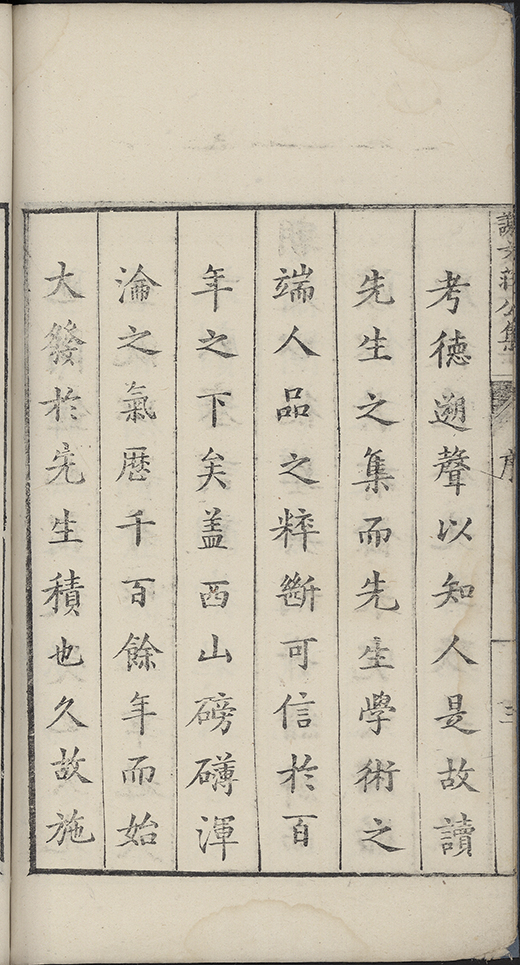 謝文莊公集
序
三
考德遡聲以知人是故讀
先生之集而先生學術之
端人品之粹斷可信於百
年之下矣盖西山磅礴渾
淪之氣厯千百餘年而始
大發於先生積也久故施